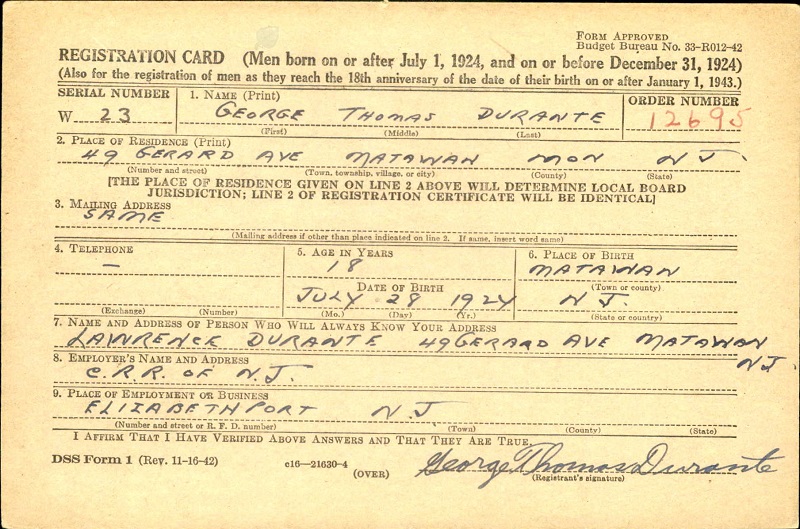 FORM APPROVED
Budget Bureau No. 33-R012-42
REGISTRATION CARD (Men born on or after July 1, 1924, and on or before December 31, 1924)
(Also for the registration of men as they reach the 18th anniversary of the date of their birth on or after January 1, 1943.)
SERIAL NUMBER 1. NAME (Print) ORDER NUMBER
W 23 GEORGE THOMAS DURANTE 12695
(First) (Middle) (Last)
2. PLACE OF RESIDENCE (Print)
49 GERARD AVE MATAWAN MON N J.
(Number and street) (Town, township, village, or city) (County) (State)
[THE PLACE OF RESIDENCE GIVEN ON LINE 2 ABOVE WILL DETERMINE LOCAL BOARD
JURISDICTION; LINE 2 OF REGISTRATION CERTIFICATE WILL BE IDENTICAL]
3. MAILING ADDRESS
SAME
(Mailing address if other than place indicated on line 2. If same, insert word same)
4. TELEPHONE 5. AGE IN YEARS 6. PLACE OF BIRTH
— 18 MATAWAN
DATE OF BIRTH (Town or county)
JULY 28 1924 N J.
(Exchange) (Number) (Mo.) (Day) (Yr.) (State or country)
7. NAME AND ADDRESS OF PERSON WHO WILL ALWAYS KNOW YOUR ADDRESS
LAWRENCE DURANTE 49 GERARD AVE MATAWAN
NJ.
8. EMPLOYER'S NAME AND ADDRESS
C.R.R. OF N.J.
9. PLACE OF EMPLOYMENT OR BUSINESS
ELIZABETHPORT N.J
(Number and street or R. F. D. number) (Town) (County) (State)
I AFFIRM THAT I HAVE VERIFIED ABOVE ANSWERS AND THAT THEY ARE TRUE.
DSS Form 1 (Rev. 11-16-42) c16—21630-4 (OVER) George Thomas Durante
(Registrant's signature)